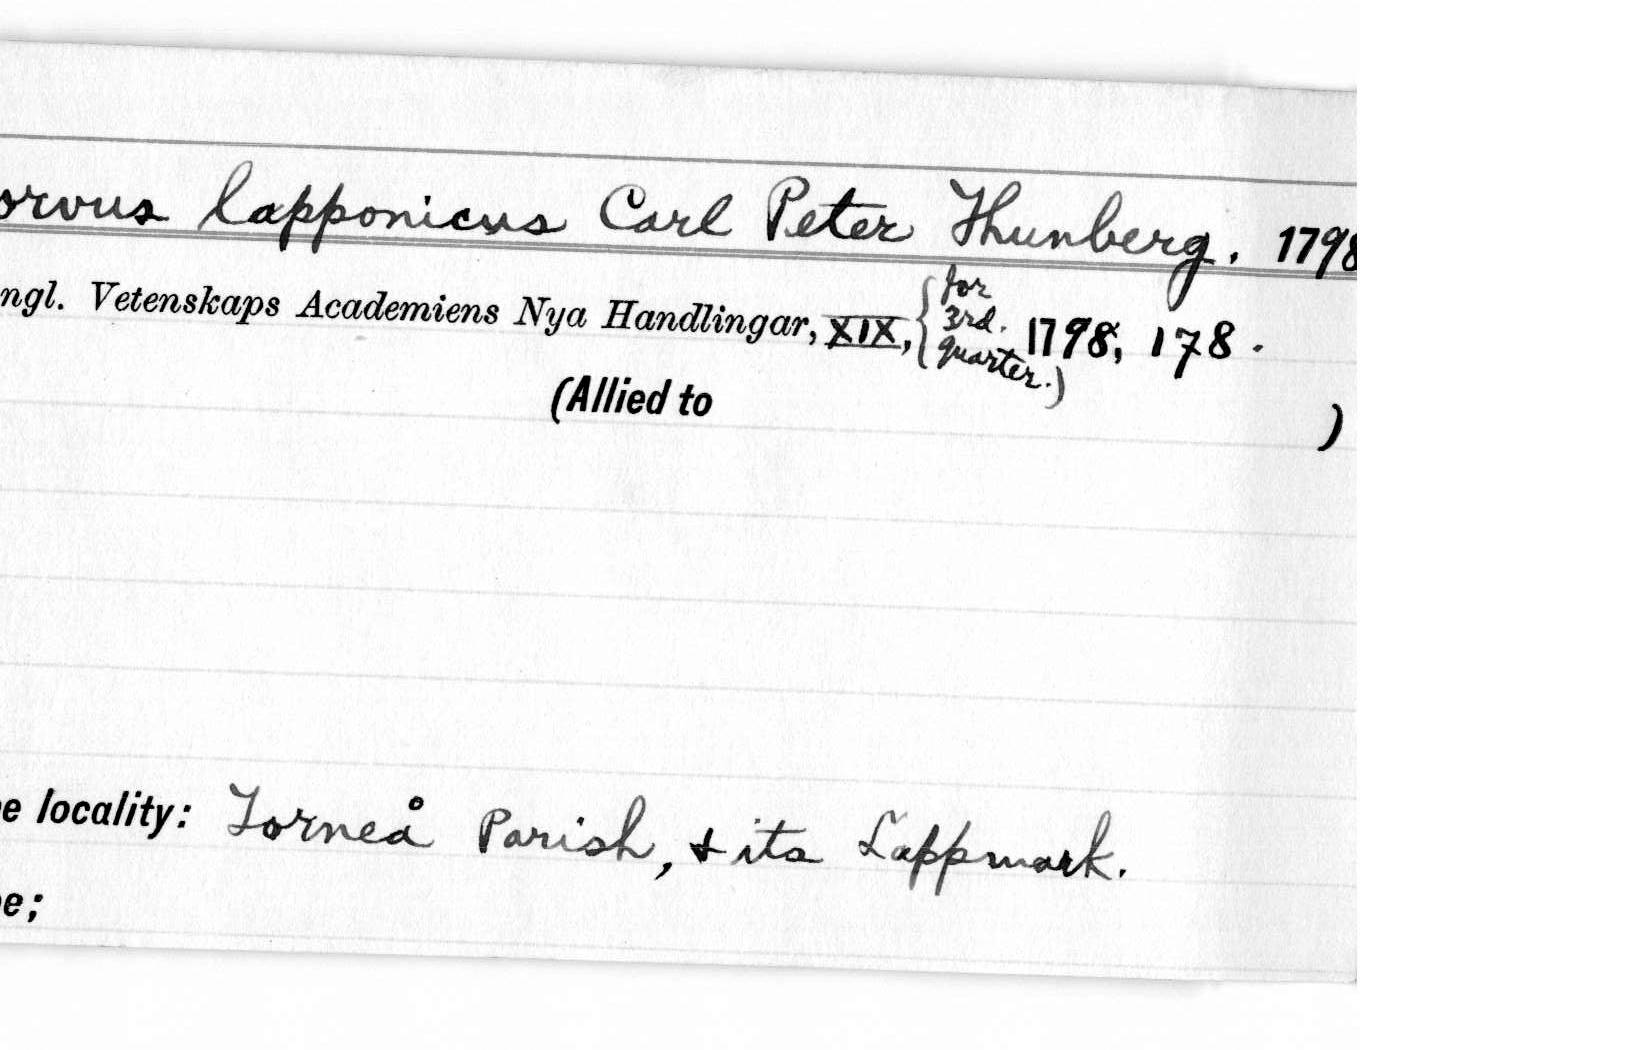 orvus lapponicus Carl Peter Thunberg. 1798
ngl. Vetenskaps Academiens Nya Handlingar, XIX, {for 3rd. quarter.) 1798, 178.
(Allied to )
e locality: Torneå Parish, & its Lappmark.
e;